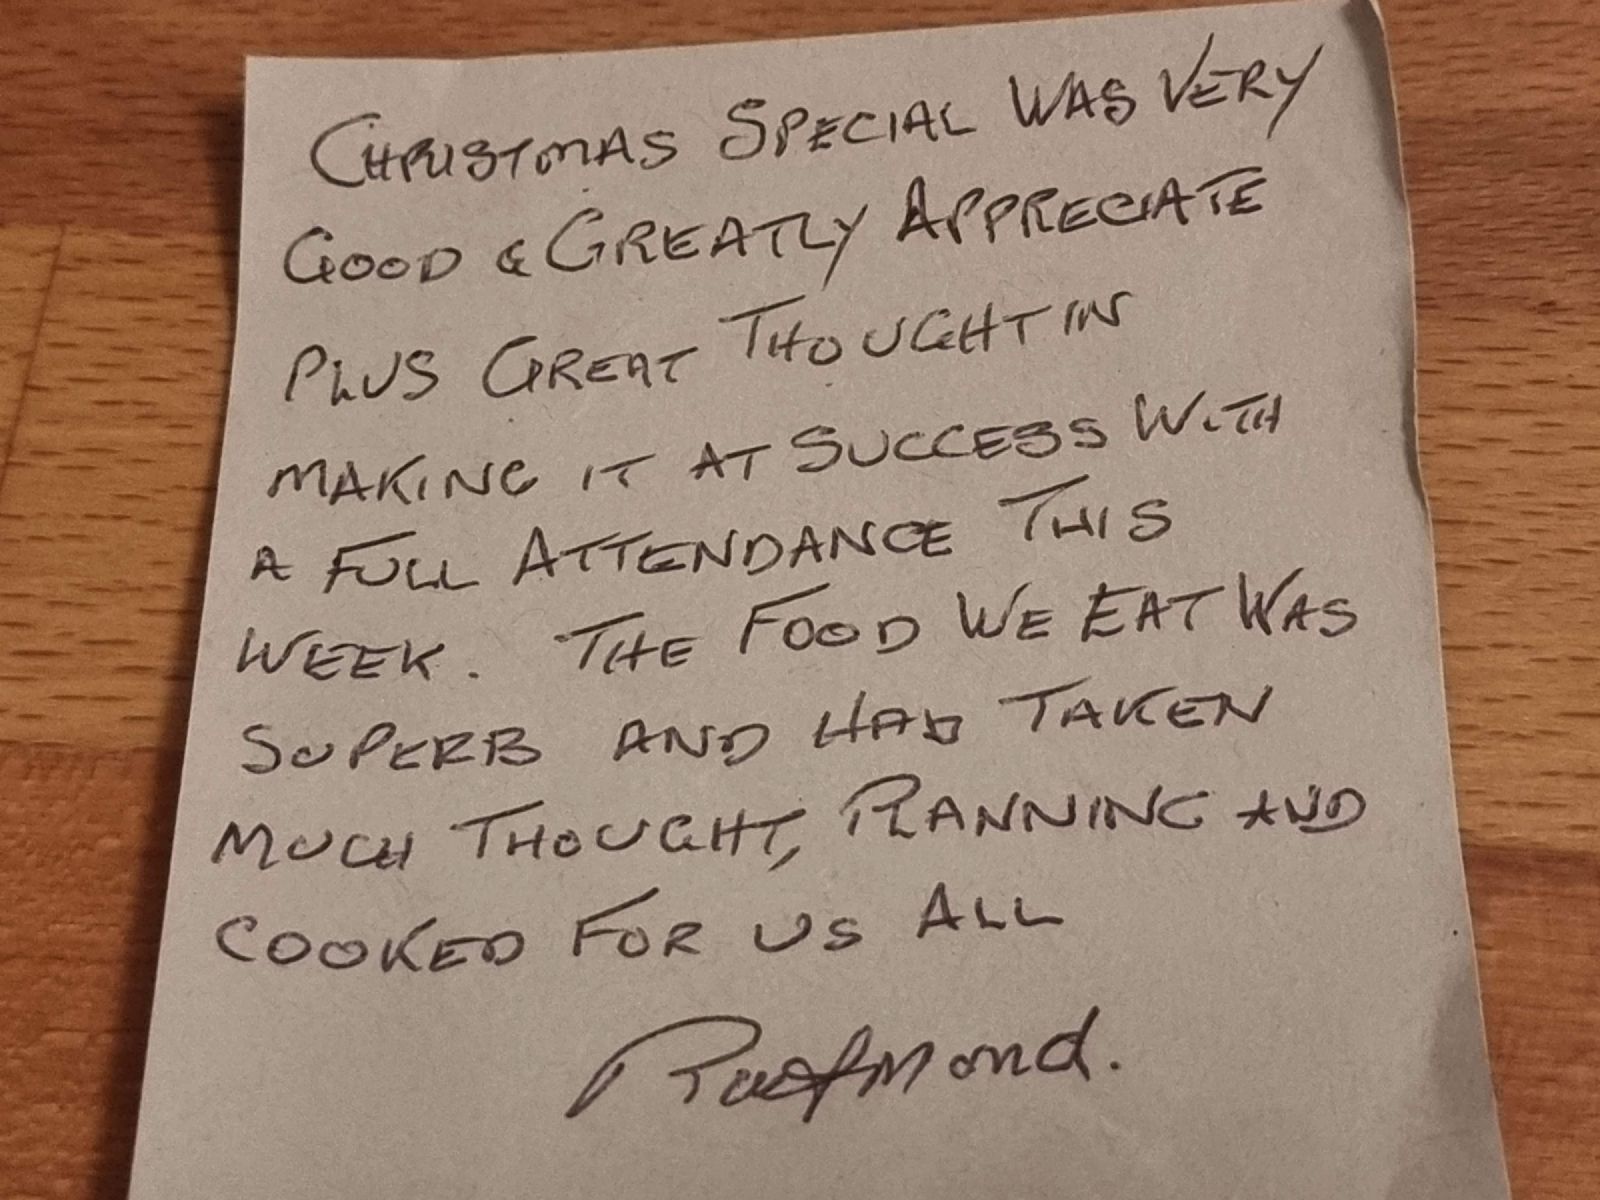 CHRISTMAS SPECIAL WAS VERY
GOOD & GREATLY APPRECIATE
PLUS GREAT THOUGHT IN
MAKING IT AT SUCCESS WITH
A FULL ATTENDANCE THIS
WEEK. THE FOOD WE EAT WAS
SUPERB AND HAD TAKEN
MUCH THOUGHT, PLANNING AND
COOKED FOR US ALL
Raymond.